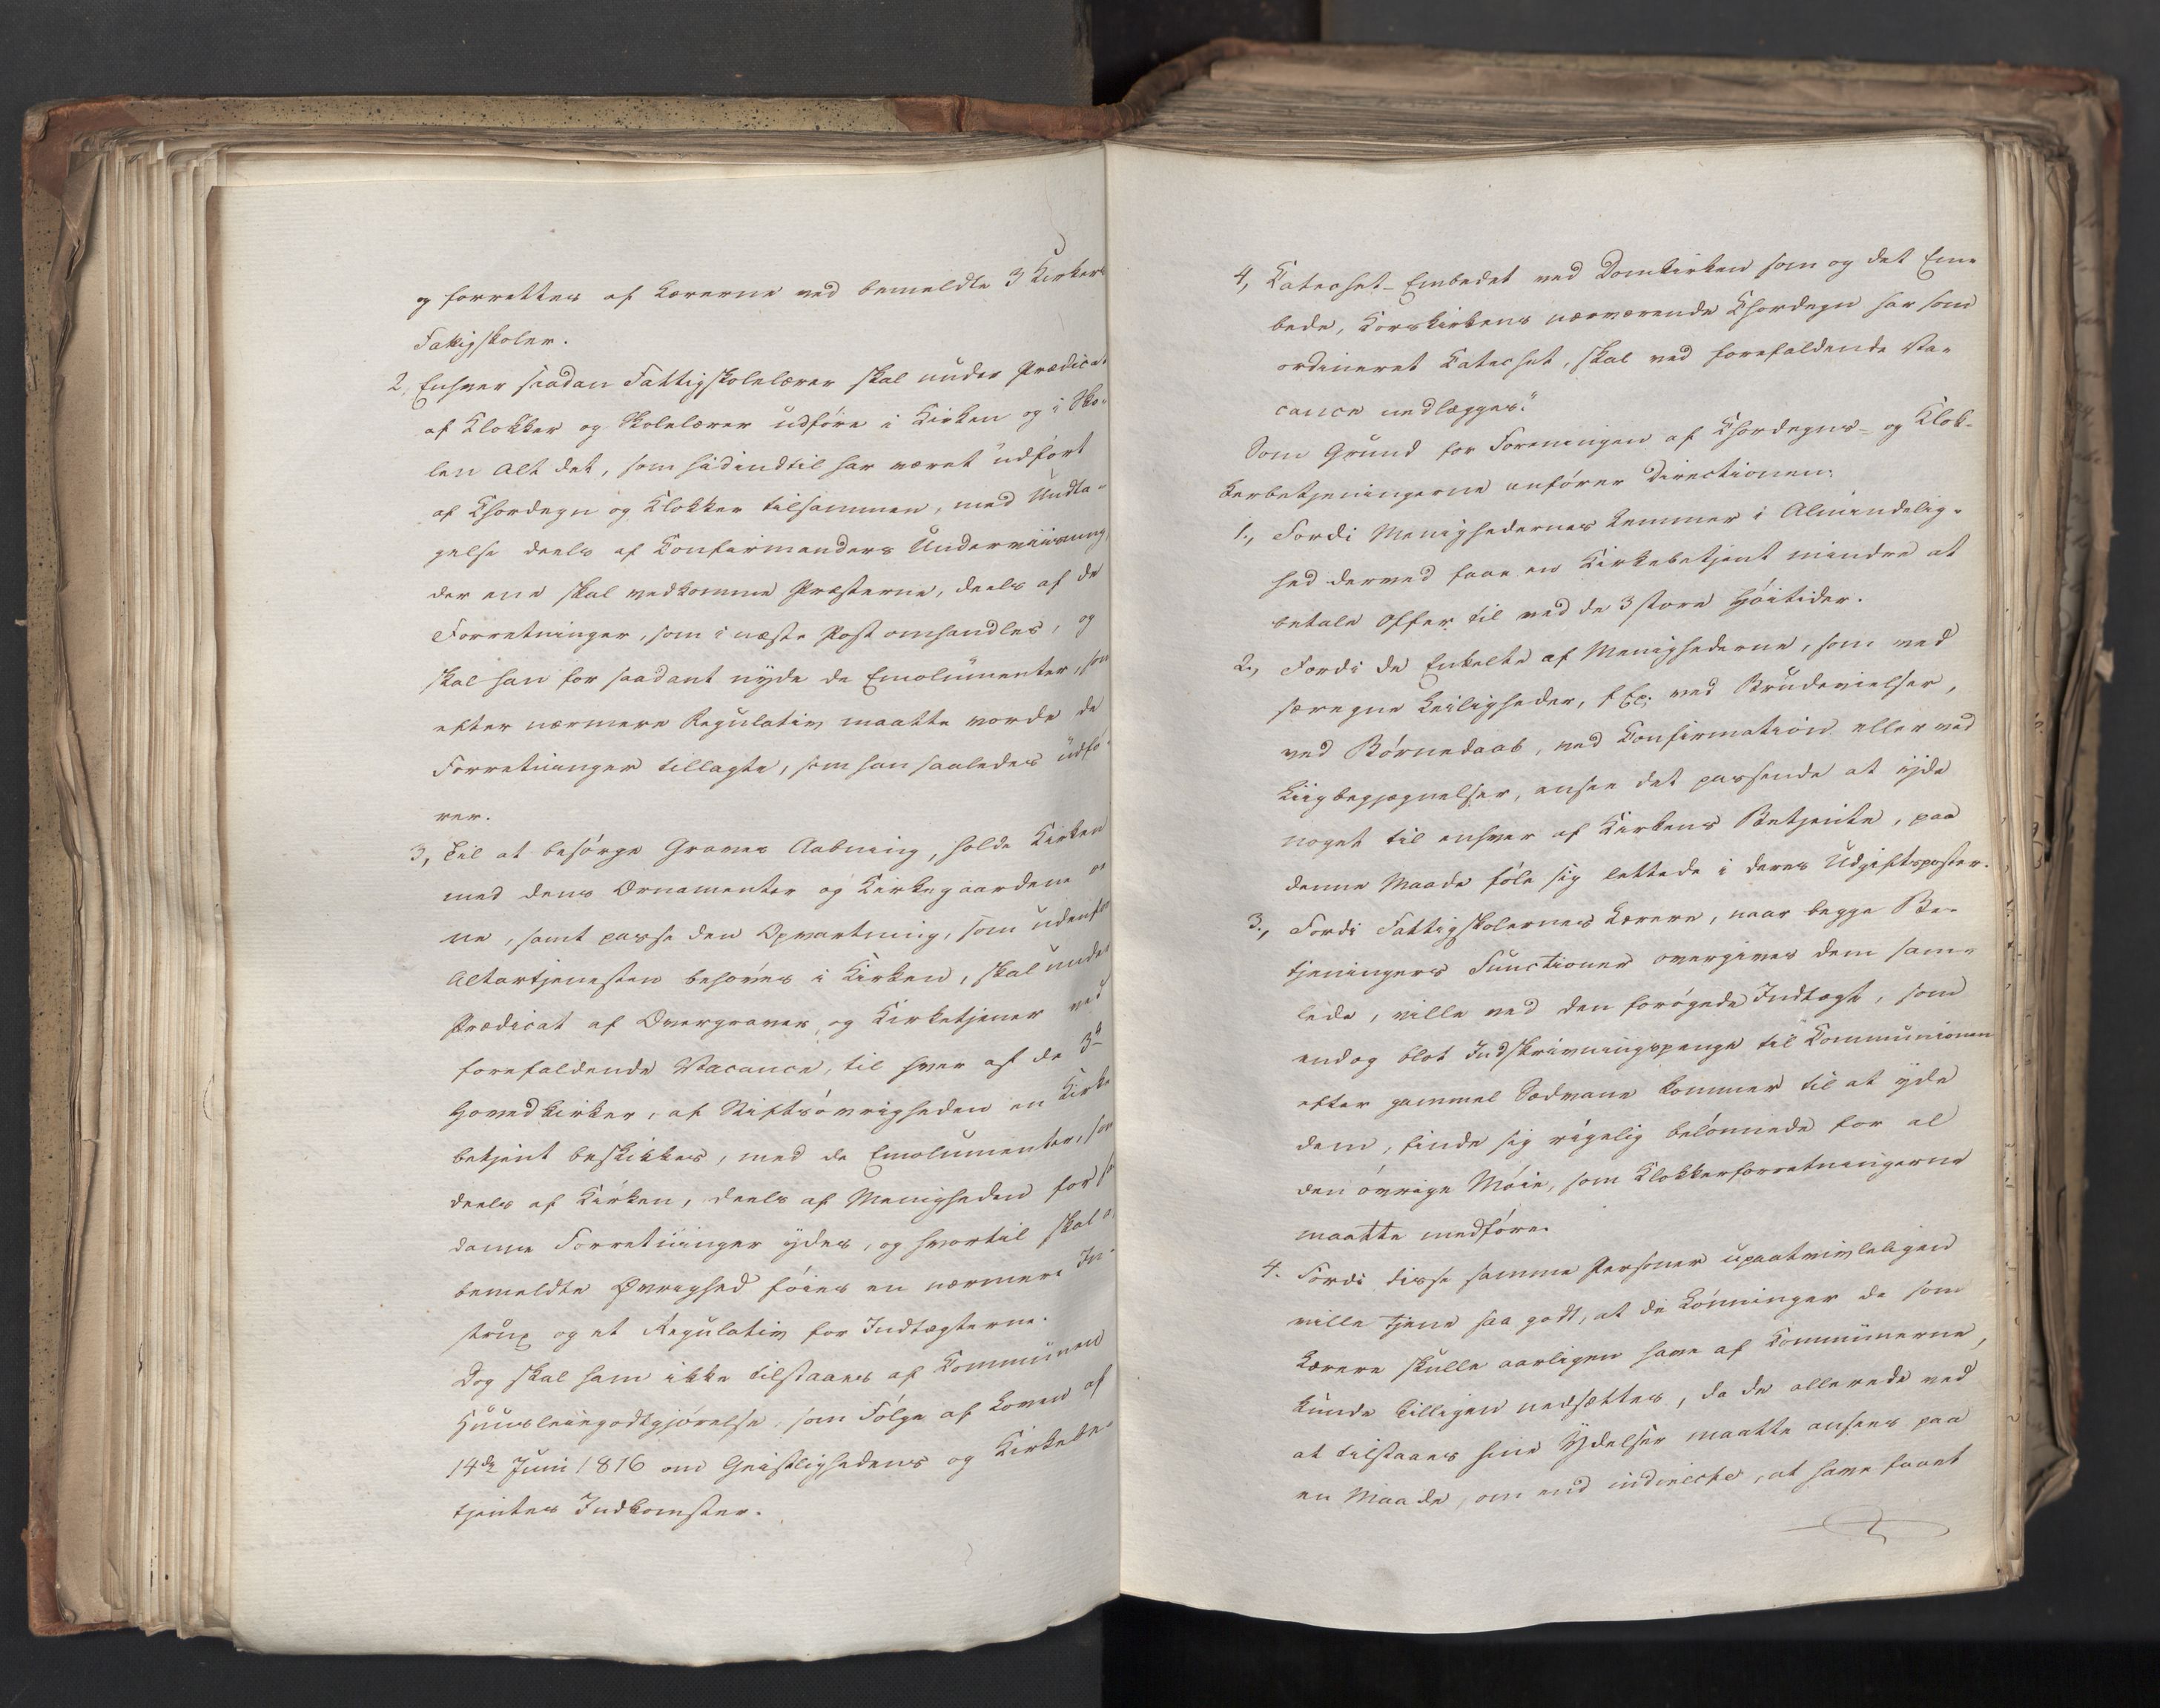 og forrettes af Lærerne ved bemeldte 3 Kirkers
Fattigskoler.
2, Enhver saadan Fattigskolelærer skal under Prædicat
af Klokker og Skolelærer udføre i Kirken og i Sko-
len Alt det, som hidindtil har været udført
af Chordegn og Klokker tilsammen, med Undta-
gelse deels af Confirmanders Underviisning,
der ene skal vedkomme Præsterne, deels af de
Forretninger, som i næste Post omhandles, og
skal han for saadant nyde de Emolumenter, som
efter nærmere Regulativ maatte vorde de
Forretninger tillagte, som han saaledes udfø-
rer.
3, Til at besørge Graves Aabning, holde Kirken
med dens Ornamenter og Kirkegaardene re-
ne, samt passe den Opvartning, som udenfor
Altartjenesten behøves i Kirken, skal under
Prædicat af Overgraver og Kirketjener ved
forefaldende Vacance, til hver af de 3de
Hovedkirker, af Stiftsøvrigheden en Kirke-
betjent beskikkes, med de Emolumenter, som
deels af Kirken, deels af Menigheden for sa-
danne Forretninger ydes, og hvortil skal af
bemeldte Øvrighed føies en nærmere In-
strux og et Regulativ for Indtægterne.
Dog skal ham ikke tilstaaes af Communen
Huusleiegodtgjørelse, som Følge af Loven af
14de Juni 1816 om Geistlighedens og Kirkebe-
tjentes Indkomster.
4, Catechet-Embedet ved Domkirken som og det Em-
bede, Korskirkens nærværende Chordegn har som
ordineret Catechet, skal ved forefaldende Va-
cance nedlægges."
Som Grund for Foreningen af Chordegns- og Klok-
kerbetjeningerne anfører Directionen:
1., Fordi Menighedernes Lemmer i Almindelig-
hed derved faae en Kirkebetjent mindre at
betale Offer til ved de 3 store Høitider.
2., Fordi de Enkelte af Menighederne, som ved
særegne Leiligheder, f. Ex: ved Brudevielser,
ved Børnedaab, ved Confirmation eller ved
Liigbegjegnelser, ansee det passende at yde
noget til enhver af Kirkens Betjente, paa
denne Maade føle sig lettede i deres Udgiftsposter.
3., Fordi Fattigskolernes Lærere, naar begge Be-
tjeningers Functioner overgives dem sam-
lede, ville ved den forøgede Indtægt, som
endog blot Indskrivningspenge til Communionen
efter gammel Sædvane kommer til at yde
dem, finde sig rigelig belønnede for al
den øvrige Møie, som Klokkerforretningerne
maatte medføre.
4. Fordi disse samme Personer upaatvivleligen
ville tjene saa godt, at de Lønninger de som
Lærere skulle aarligen have af Communerne,
kunde billigen nedsættes, da de allerede ved
at tilstaaes hine Ydelser maatte ansees paa
en Maade, om end indirecte, at have faaet